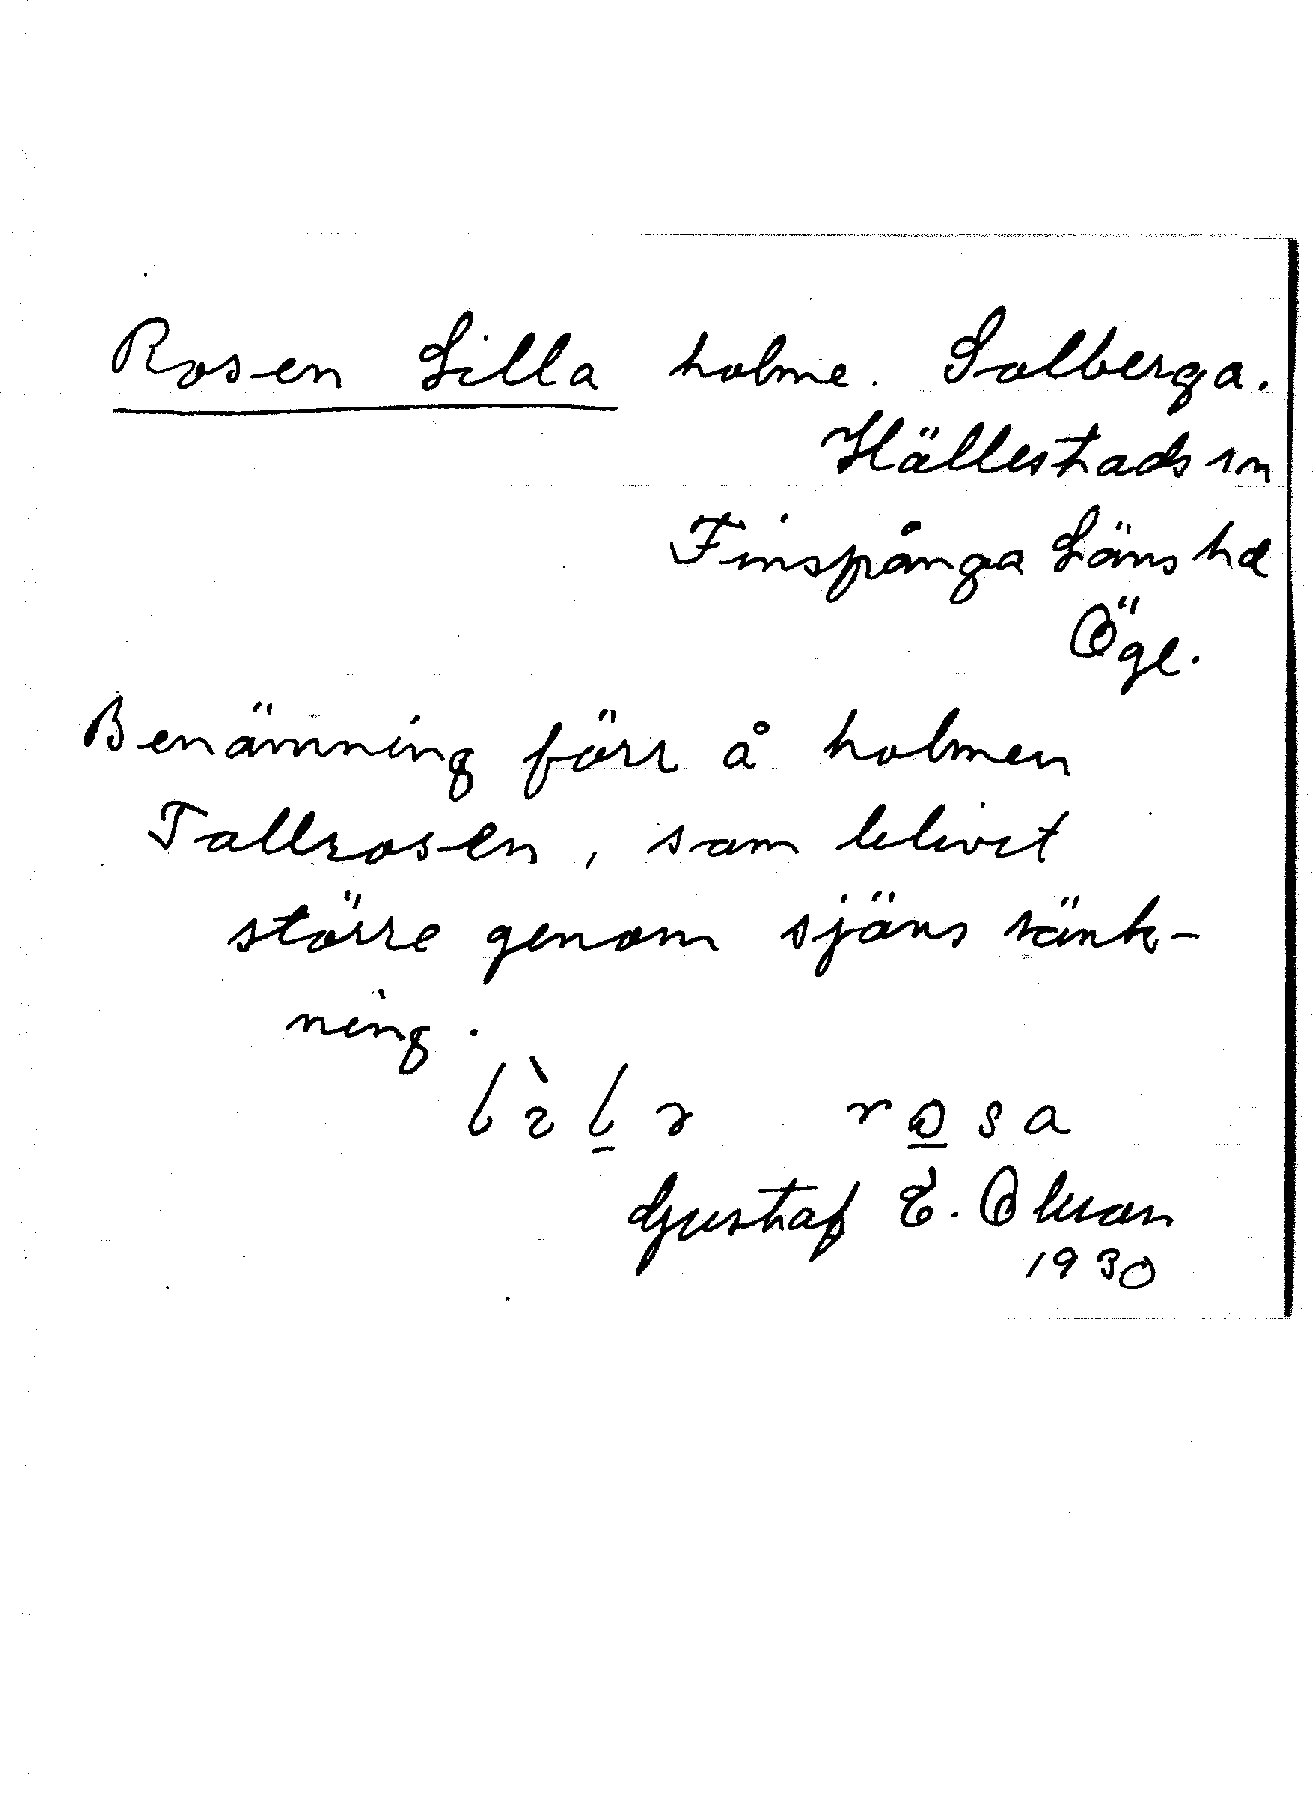 Rosen Lilla holme. Solberga.
Hällestads sn
Finspånga Läns hd
Ögl.
Benämning förr å holmen
Tallrosen, som blivit
större genom sjöns sänk-
ning.
rosa
Gustaf E. Olsson
1930